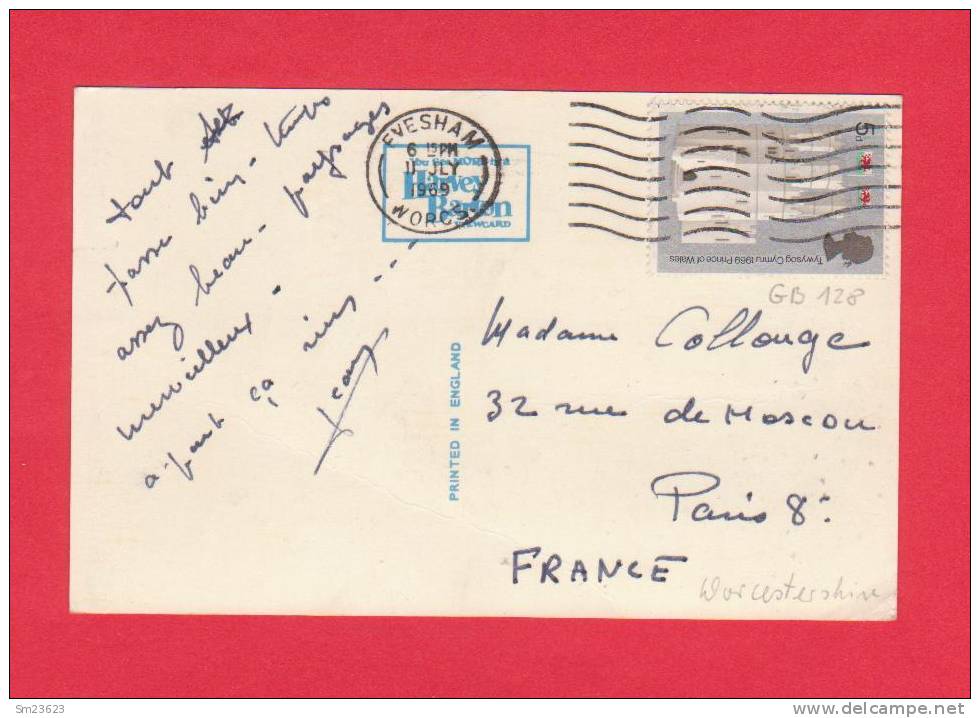 tout se
passe bien - temps
assez beau - paysages
merveilleux -
à part ça rien ---
Jean
EVESHAM
6 15 PM
11 JLY
1969
WORCS.
Harvey
Barton
VIEWCARD
PRINTED IN ENGLAND
5d
Tywysog Cymru 1969 Prince of Wales
GB 128
Madame Collonge
32 rue de Moscou
Paris 8e
FRANCE
Worcestershire
Sm23623
www.delcampe.net